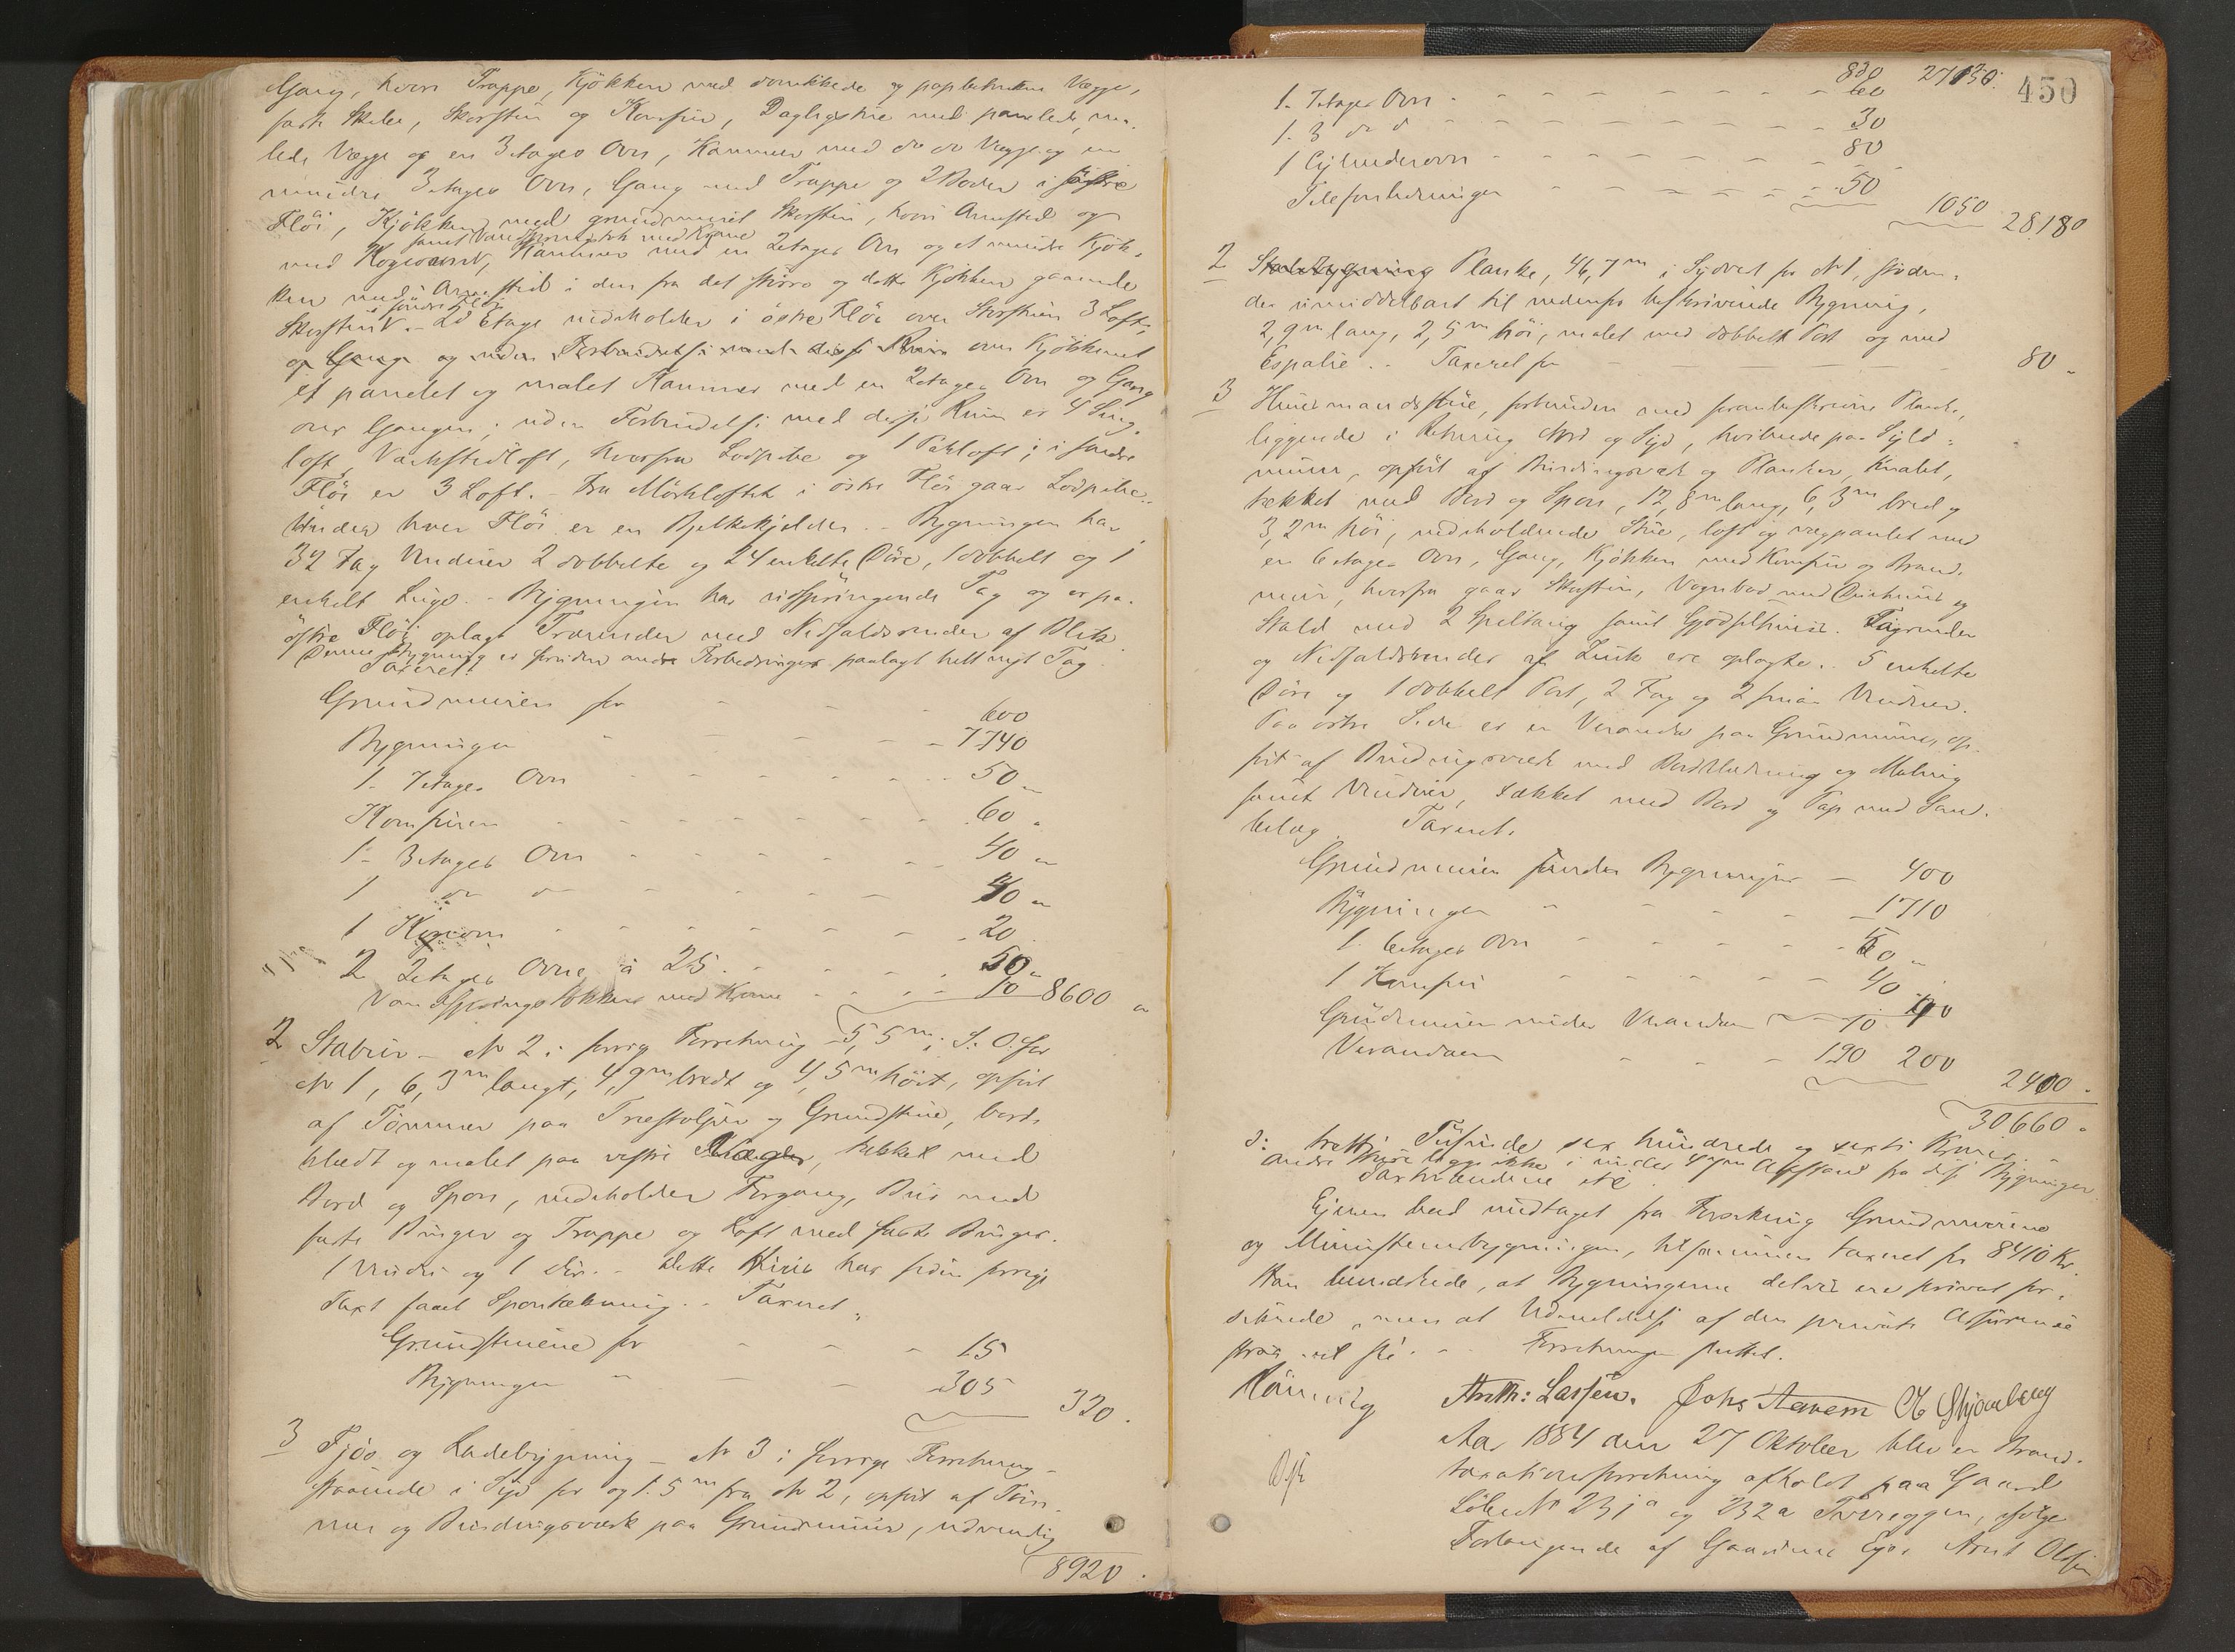 Gang, hvori Trappe, Kjökken med donkkede og papbetrukne Vægge,
faste Skabe, Skorsten og Komfur, Dagligstue med panelede, ma-
lede Vægge og en 3etages Ovn, Kammer med do do Vægge og en
mindre 3etages Ovn, Gang med Trappe og 2 Boder i östre
Flöi, Kjökken med grundmuret Skorsten, hvori Arnested og
samt Vandspringstok med Krane
med Kogeovn, Kammer med en 2etages Ovn og et mindre Kjök-
ken med Arnested i den fra det större og dette Kjökken gaaende
söndre Flöi
Skorsten. - 2d Etage indeholder i östre Flöi over Storstuen 3 Loft
og Gang og uden Forbindelse med disse Rum over Kjökkenet
et panelet og malet Kammer med en 2etages Ovn og Gang
over Gangen; uden Forbindelse med disse Rum er 4 Seng-
loft, Værkstedloft, hvorfra Lodpibe og 1 Mörkloft; i söndre
Flöi er 3 Loft. - Fra Mörkloftet i östre Flöi gaar Lodpibe.
Under hver Flöi er en Bjelkekjelder. - Bygningen har
32 Fag Vinduer 2 dobbelte og 24 enkelte Döre, 1 dobbelt og 1
enkelt Luge. - Bygningen har udspringende Tag og er paa
östre Flöi oplagt Trærender med Nedfaldsrender af Blik.
Denne Bygning er foruden andre Forbedringer paalagt helt nyt Tag.
Taxeret:
Grundmuren for - - - 600
Bygningen - - - - 7740
1- 7etages Ovn - - - - 50 "
Komfuren - - - - 60 "
1- 3etages Ovn - - - - 40 "
1 do d - - - - 40 "
1 Kogeovn - - - - 20
2 2etages Ovne à 25 - - - - 50 "
Vandspringstokken med Krane - - - - 10 8600 "
2 Stabur - No 2 i forrige Forretning - 5,5 m i S.O. for
No 1, 6,3 m langt, 4,9 m bredt og 4,5 m höit, opfört
af Tömmer paa Træstolper og Grundstene, bord-
klædt og malet paa vestre Væg, tækket med
Bord og Spon, indeholder Forgang, Bur med
faste Binger og Trappe og Loft med faste Binger.
1 Vindu og 1 Dör. - Dette Huus har siden forrige
Taxt faaet Spontækning. - Taxeret
Grundstenene for - - - 15
Bygningen " - - 305
320.
3 Fjös og Ladebygning - No 3 i forrige Forretning -
staaende i Syd for og 1.5 m fra No 2, opfört af Töm-
mer og Bindingsværk paa Grundmuur, udvendig
8920.
450
830 27130.
1- 7etages Ovn - - - - 60
1- 3 do d - - - - 30
1 Cylinderovn - - - - 80
Telefonledningen - - - - 50
1050 28,180
2 Stakbygning Planke, 46,7 m i Sydvest for No 1, stöden-
de umiddelbart til nedenfor beskrivende Bygning,
2,9 m lang, 2,5 m höi, malet med dobbelt Port og med
Espalie. - Taxeret for - - - 80 "
3 Huusmandsstue, forbunden med foranbeskrevne Planke,
liggende i Retning Nord og Syd, hvilende paa Syld-
muur, opfört af Bindingsværk og Planker, Knubt,
tækket med Bord og Spon, 12,8 m lang, 6,3 m bred og
3,2 m höi, indeholdende Stue, loft og vægpanelet med
en 6etages Ovn, Gang, Kjökken med Komfur og Brand-
muur, hvorfra gaar Skorsten, Vognbod med Duehuus og
Stald med 2 Spiltaug samt Gjödselhuus. Tagrender
og Nedfaldsrender af Zink ere oplagte. 5 enkelte
Döre og 1 dobbelt Port, 2 Fag og 2 smaa Vinduer.
Paa östre Side er en Veranda paa Grundmuur, op-
fört af Bindingsværk med Bordklædning og Maling
samt Vinduer, tækket med Bord og Pap med Sand-
belæg. Taxeret:
Grundmuren under Bygningen - 400
Bygningen " - - - 1710
1- 6etages Ovn - - - - 50 "
1 Komfur - - - - 40
Grundmuren under Verandaen - 10
Verandaen - - - 190 200
2400.
30,660.
ɔ: tretti Tusinde sex hundrede og sexti Kroner. -
andre Huse ligge ikke i under 4 m Afstand fra disse Bygninger.
Ejeren bad undtaget fra Forsikring Grundmurene
og Ministeriebygningen, tilsammen taxeret for 8410 Kr.
Han bemærkede, at Bygningerne delvis ere privat for-
sikrede, men at Udmeldelse af den private Assurance
strax vil ske. - Forretningen sluttet.
Anth: Lassen. Johs Aavem
Aar 1884 den 27 Oktober blev en Brand-
taxationsforretning afholdt paa Gaard
Löbe No 231a og 232a Tværeggen, ifölge
Forlangende af Gaardens Ejer Arnt Olsen